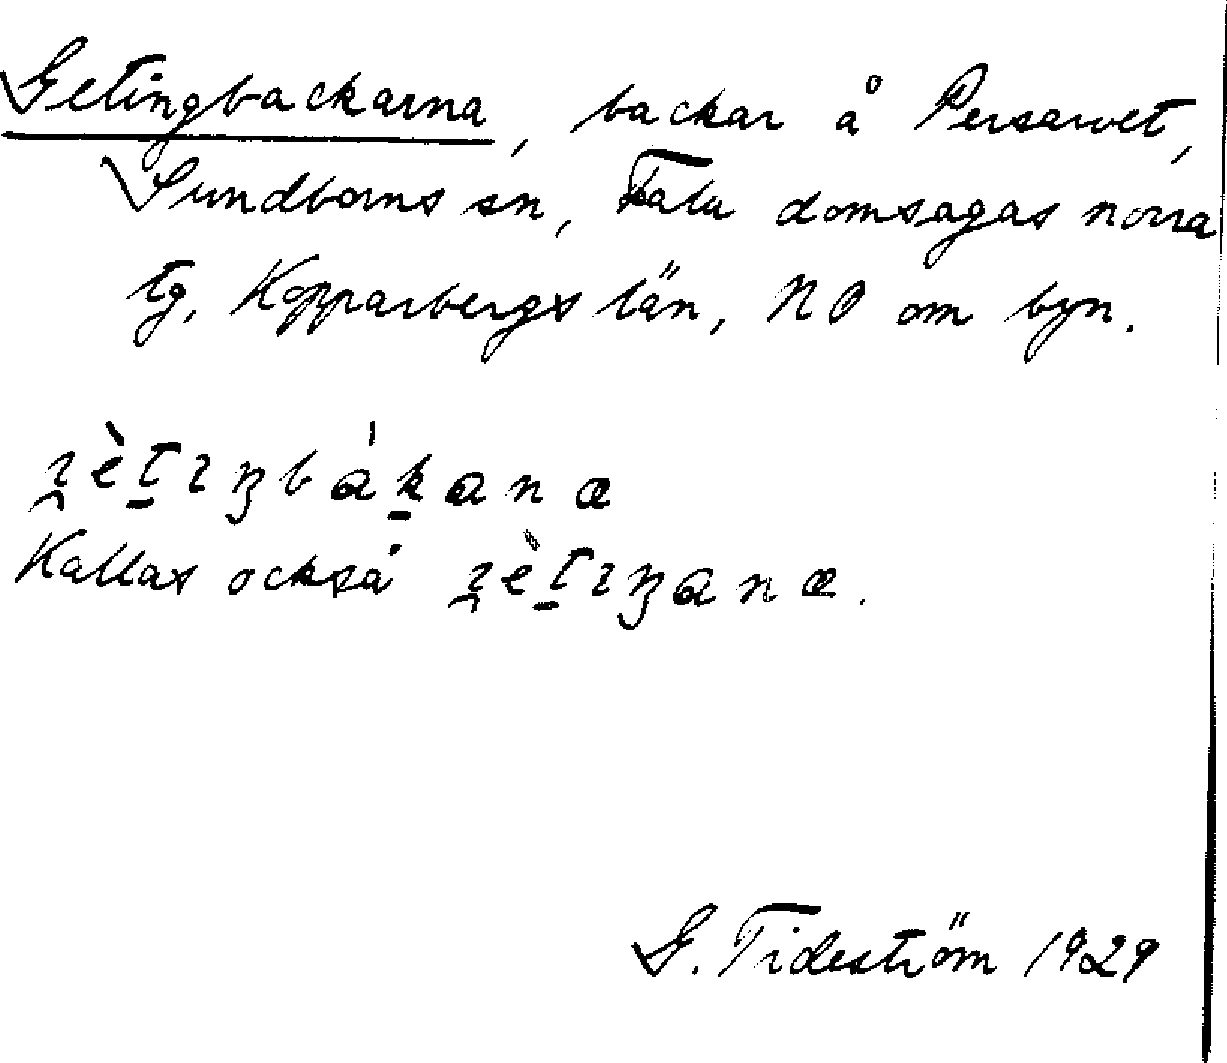 Getingbackarna, backar å Persarvet,
Sundborns sn, Falu domsagas norra
tg, Kopparbergs län, NO om byn.
ɿètɿŋbákana
Kallas också ɿètɿŋana.
G. Tideström 1929